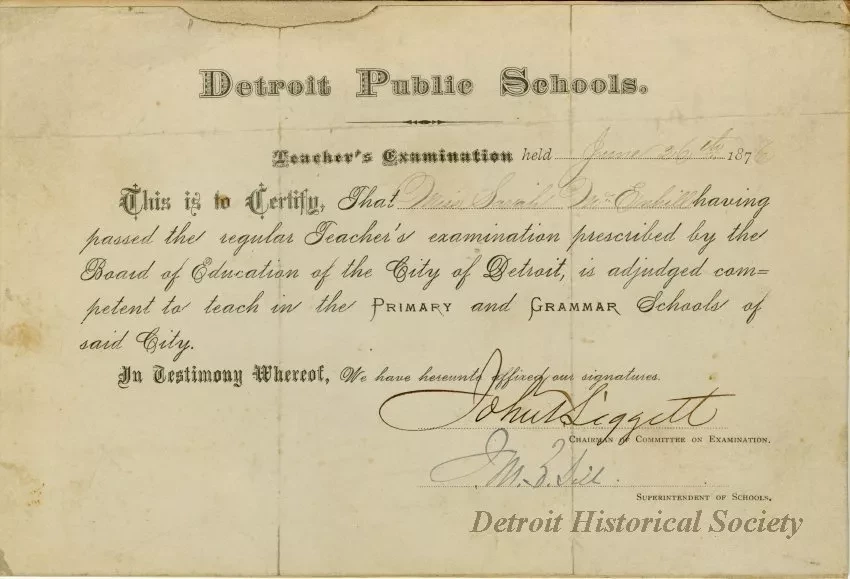 Detroit Public Schools.
Teacher's Examination held June 26th 1876
This is to Certify, That Miss Sarah Mc having
passed the regular Teacher's examination prescribed by the
Board of Education of the City of Detroit, is adjudged com=
petent to teach in the PRIMARY and GRAMMAR Schools of
said City.
In Testimony Whereof, We have hereunto affixed our signatures.
John Liggett
CHAIRMAN OF COMMITTEE ON EXAMINATION.
J. M. B. Sill
SUPERINTENDENT OF SCHOOLS.
Detroit Historical Society